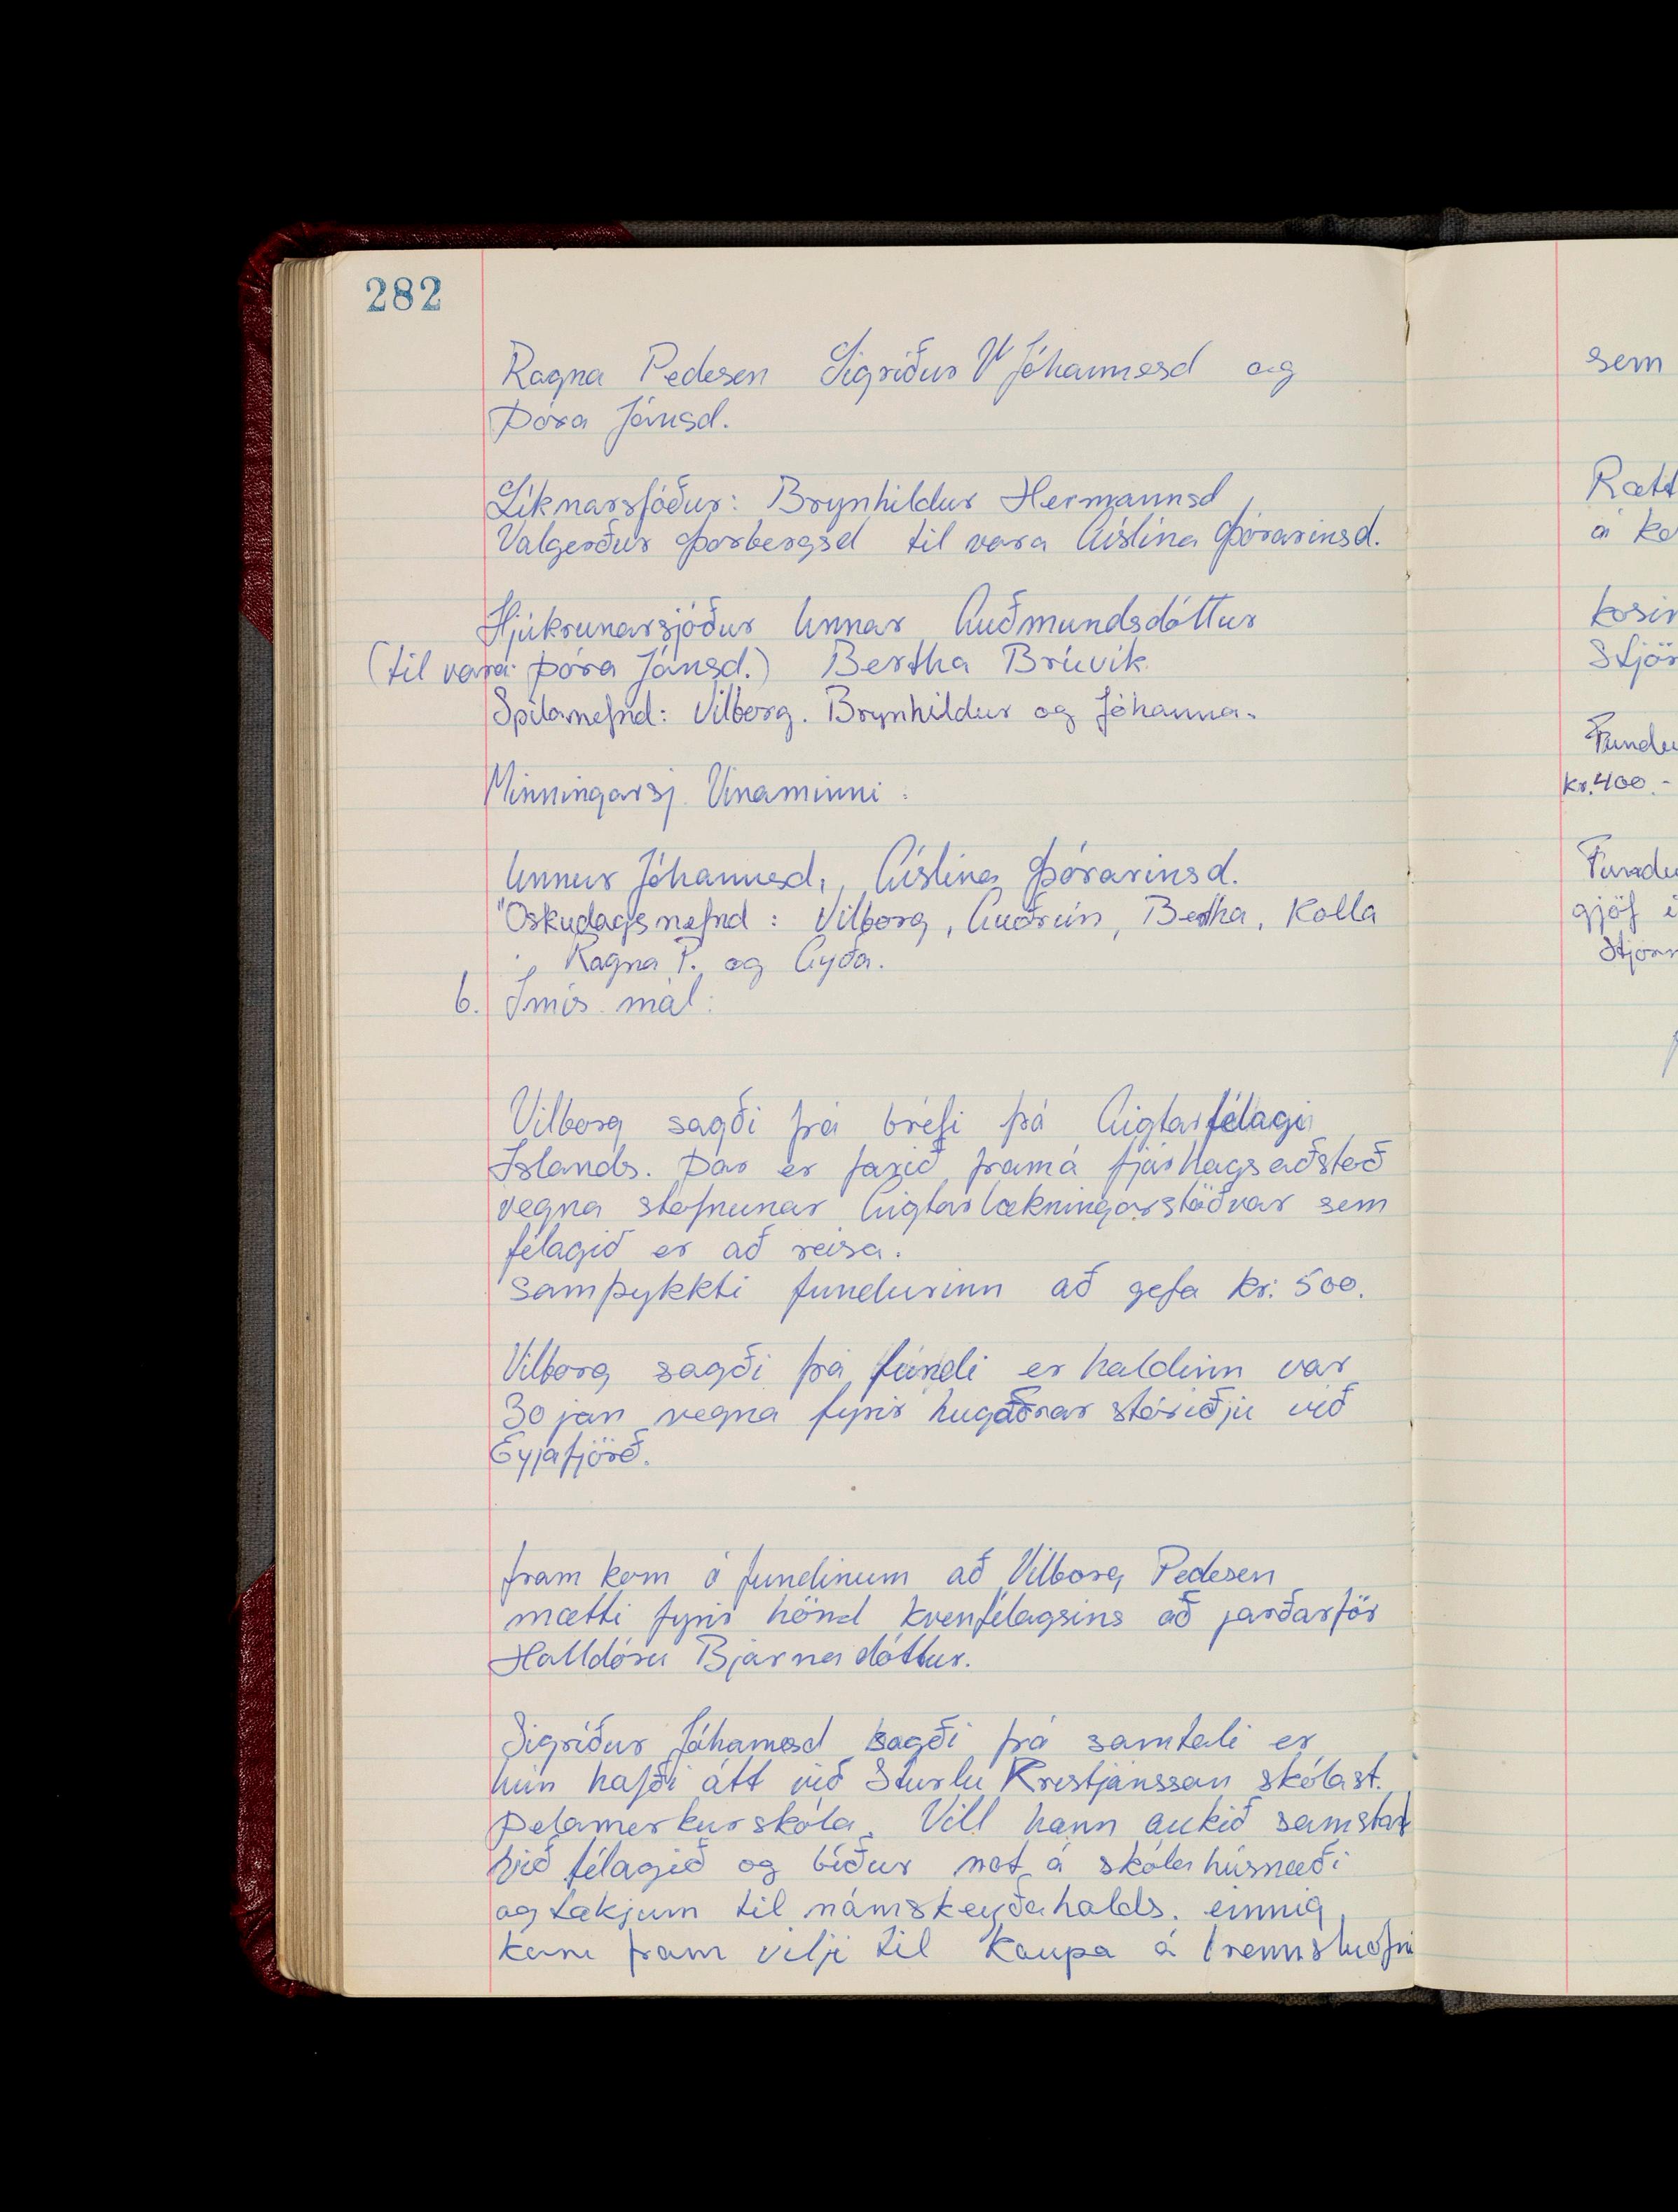 282
Ragna Pedesen Sigríður V Jóhannesd og
Þóra Jónsd.
Líknarsjóður: Brynhildur Hermannsd,
Valgerður Þorbergsd til vara Gíslína Þórarinsd.
Hjúkrunarsjóður Unnar Guðmundsdóttur
(til vara: Þóra Jónsd.) Bertha Brúvik
Spilanefnd: Vilborg. Brynhildur og Jóhanna.
Minningarsj. Vinaminni:
Unnur Jóhannesd, Gíslína Þórarinsd.
Öskudagsnefnd: Vilborg, Guðrún, Bertha, Kolla
Ragna P. og Gyða.
6. Ýmis mál:
Vilborg sagði frá bréfi frá Gigtarfélagi
Íslands. Þar er farið framá fjárhagsaðstoð
vegna stofnunar Gigtarlækningarstöðvar sem
félagið er að reisa.
Samþykkti fundurinn að gefa kr: 500.
Vilborg sagði frá fundi er haldinn var
30 jan vegna fyrir hugaðrar stóriðju við
Eyjafjörð.
fram kom á fundinum að Vilborg Pedesen
mætti fyrir hönd kvenfélagsins að jarðarför
Halldóru Bjarnadóttur.
Sigríður Jóhannesd sagði frá samtali er
hún hafði átt við Sturlu Kristjánsson skólast.
Þelamerkurskóla. Vill hann aukið samstarf
við félagið og bíður not á skólahúsnæði
og tækjum til námskeyðahalds. einnig
kom fram vilji til kaupa á brennsluofni
sem
á
kr. 400.-
gjöf